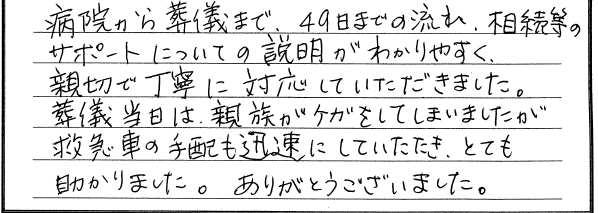 病院から葬儀まで、49日までの流れ、相続等の
サポートについての説明がわかりやすく、
親切で丁寧に対応していただきました。
葬儀当日は、親族がケガをしてしまいましたが
救急車の手配も迅速にしていただき、とても
助かりました。ありがとうございました。